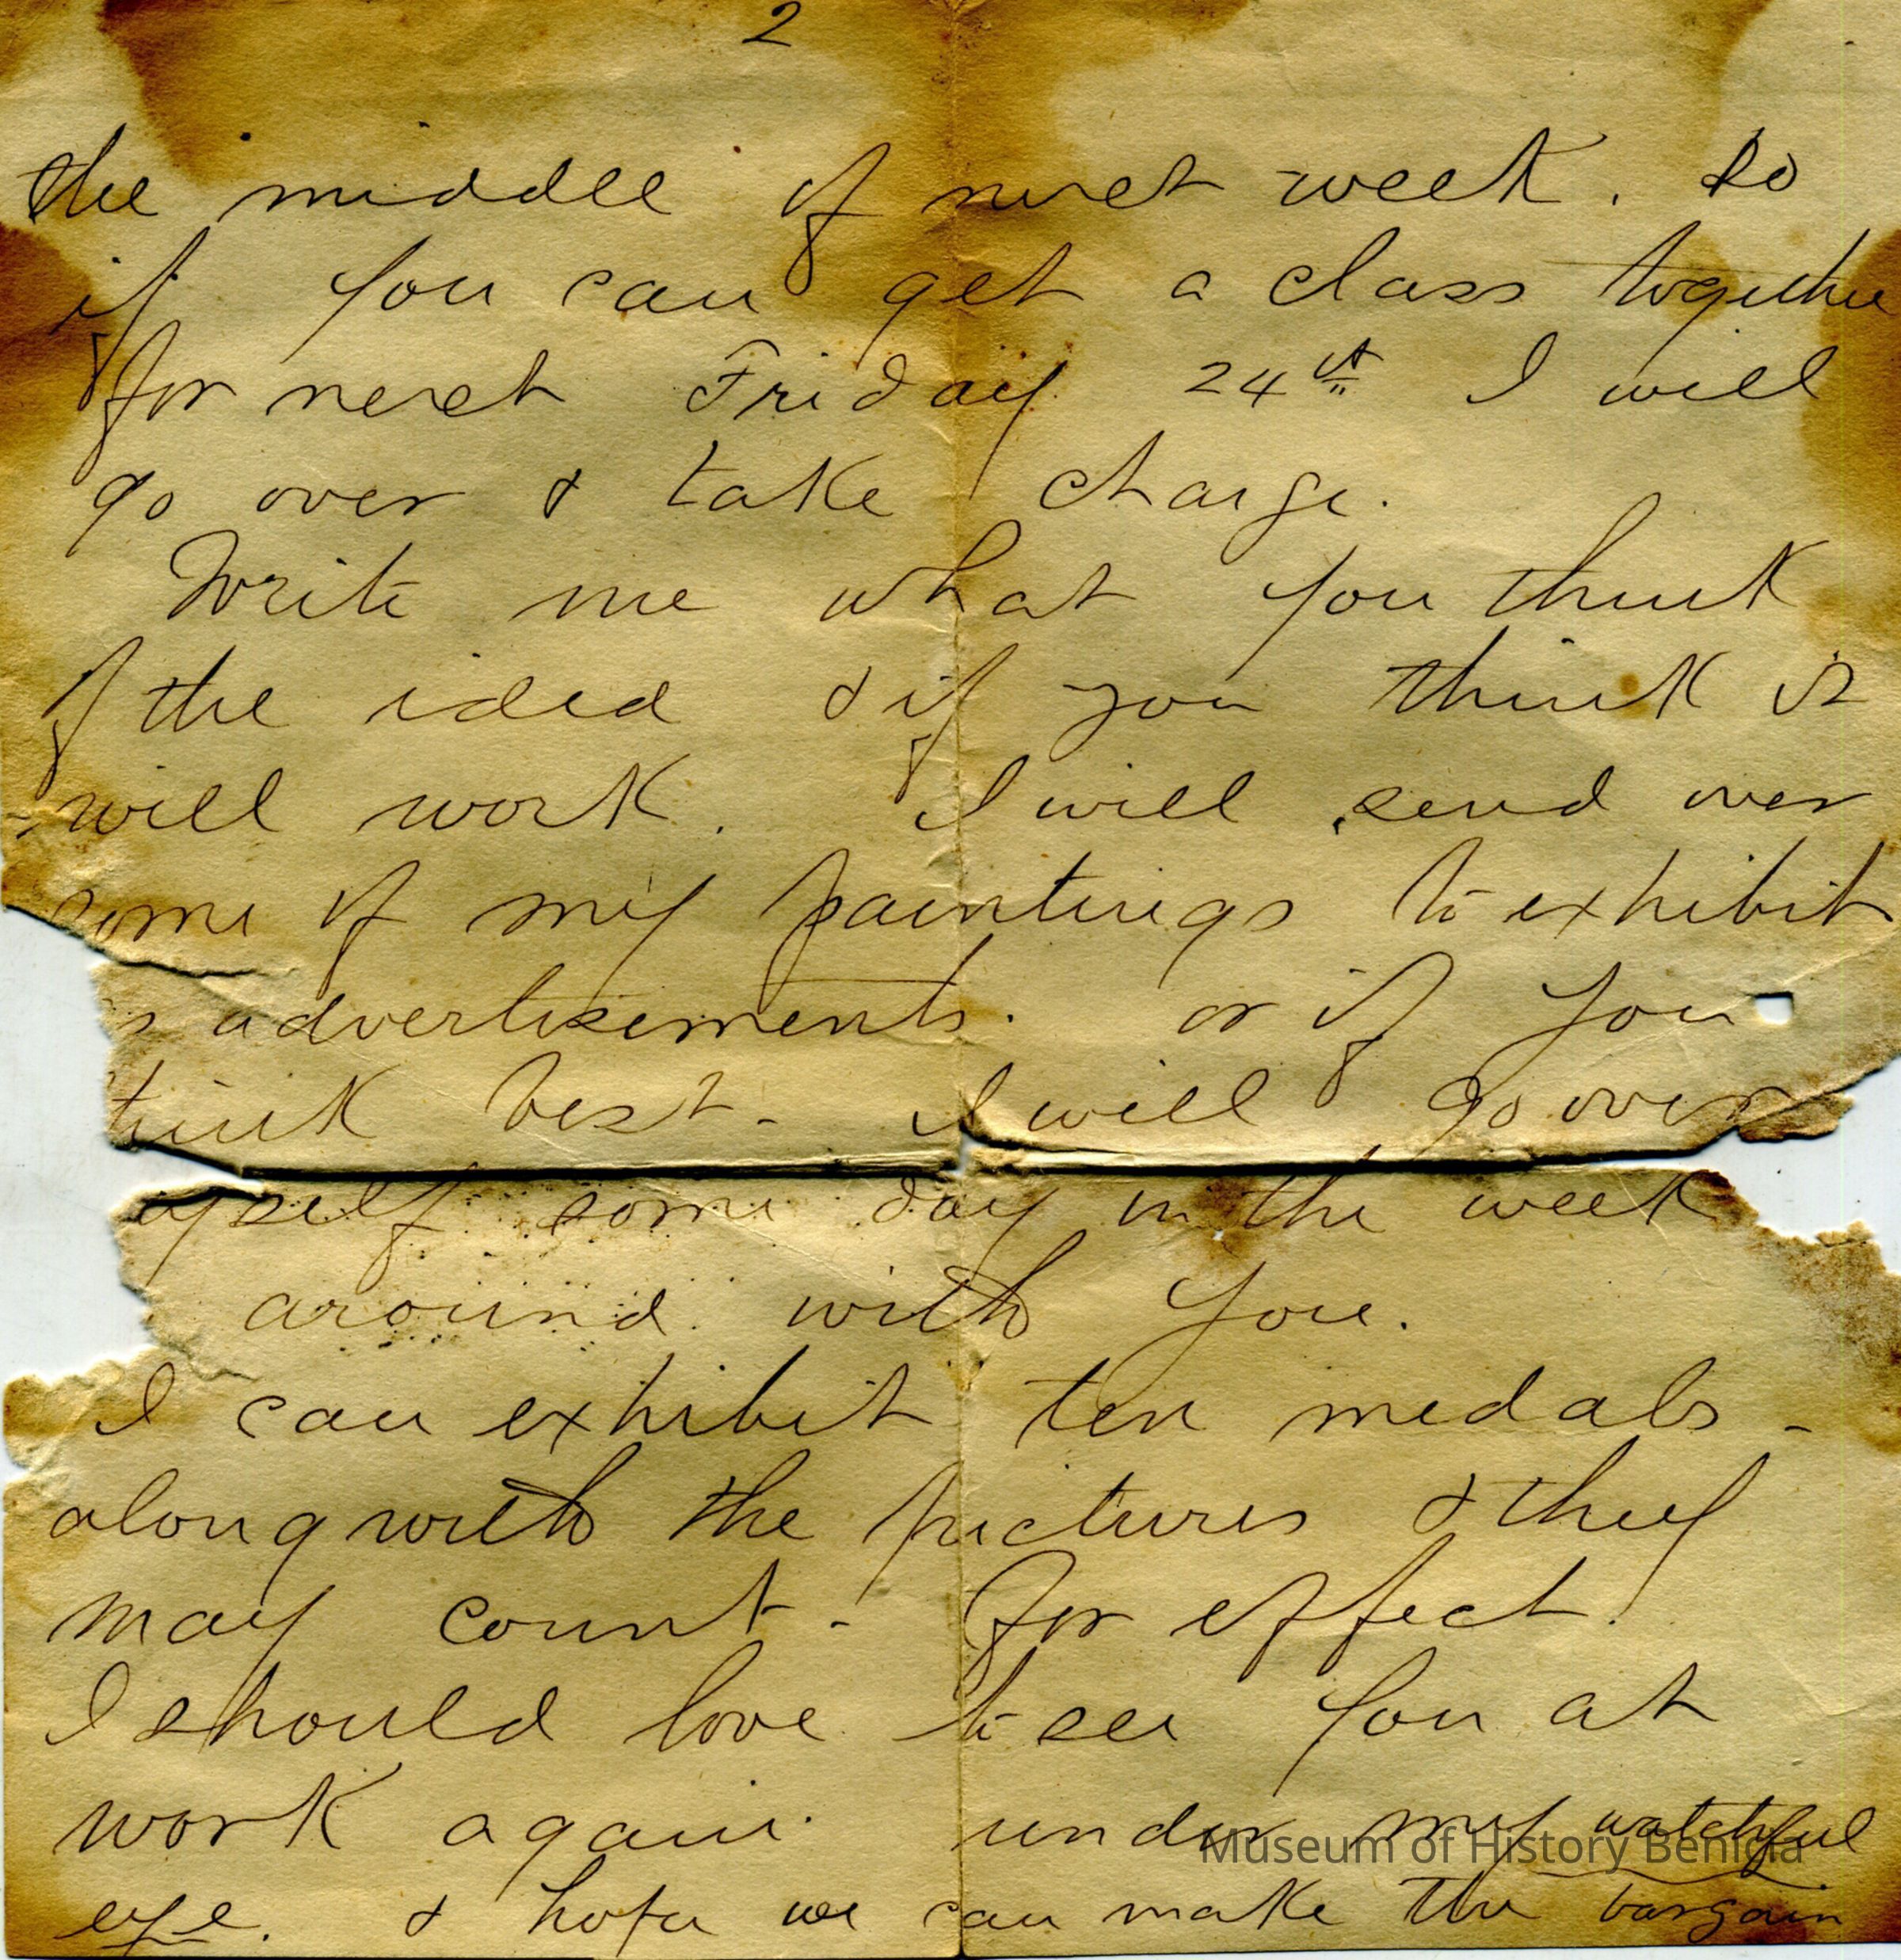 2
the middle of next week. So
if you can get a class together
for next Friday 24th I will
go over & take charge.
Write me what you think
of the idea & if you think it
will work. I will send over
some of my paintings to exhibit
s advertisements. or if you
think best - I will go over
yself some day in the week
around with you.
I can exhibit ten medals -
along with the pictures & they
may count - for effect.
I should love to see you at
work again. under my watchful
eye. & hope we can make the bargain
Museum of History Benicia